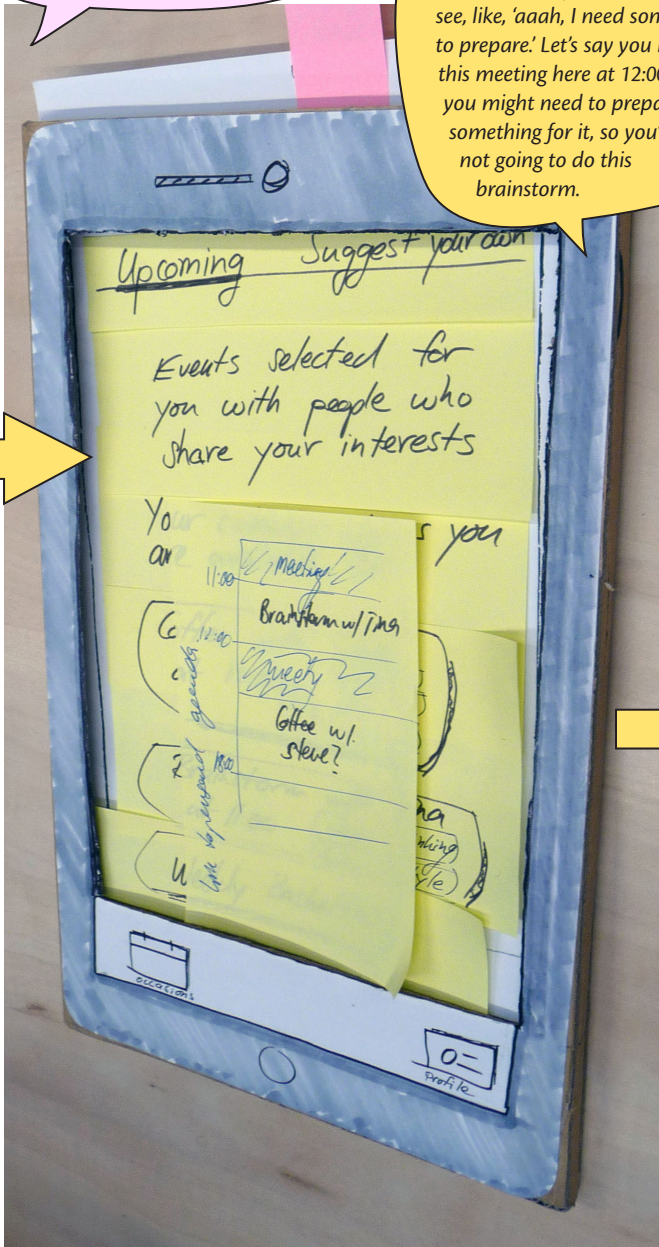 see, like, 'aaah, I need som
to prepare.' Let's say you
this meeting here at 12:00
you might need to prepa
something for it, so you'
not going to do this
brainstorm.
Upcoming Suggest your own
Events selected for
you with people who
share your interests
Yo s you
ar
meeting
11:00
Brainstorm w/ Tina
12:00
meety
Coffee w/
steve?
link to personal agenda
na
nking
yle)
occasions
O=
profile